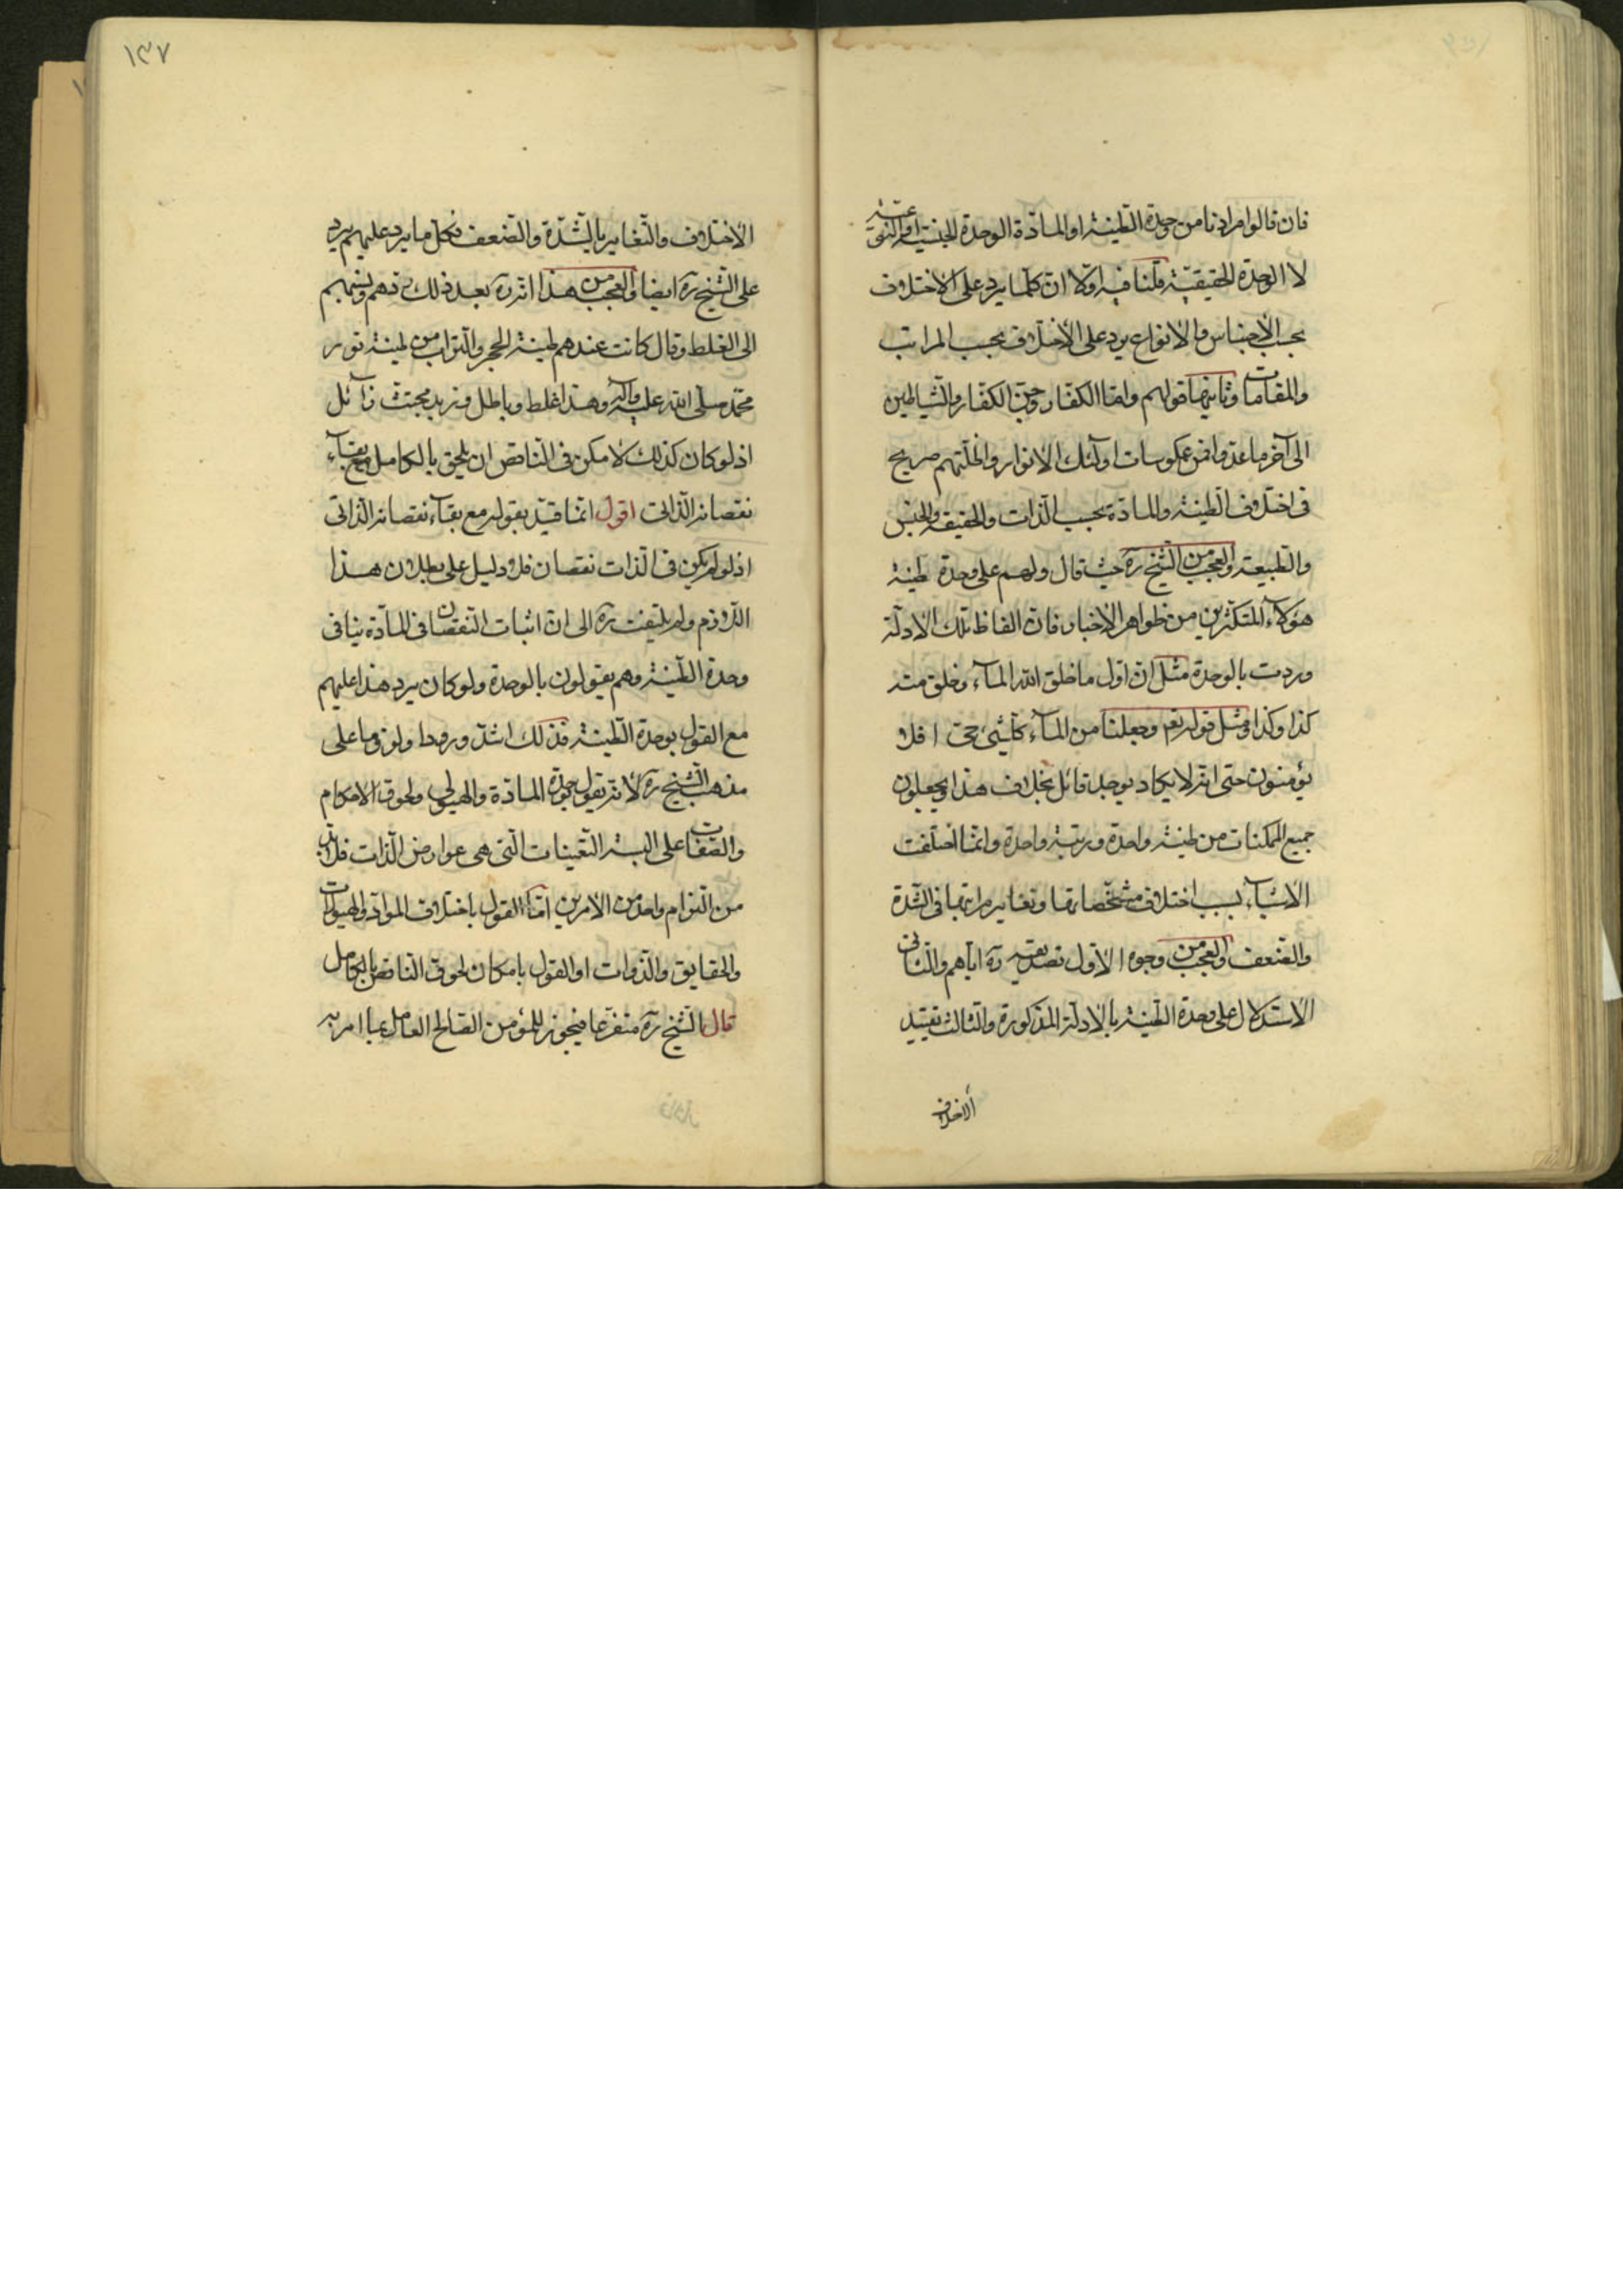 فان قالوا مرادنا من وحدة الطينة او المادة الوحدة الجنسية او النوعية
لا الوحدة الحقيقية قلنا فيه اولا ان كلما يرد على الاختلاف
بحسب الأجناس والانواع يرد على الأختلاف بحسب المراتب
والمقامات وثانيها قولهم ولقا الكفار وجن الكفار والشياطين
الى آخر ما عدوا فمن عكوسات اولئك الانوار واظلتهم صريح
فى اختلاف الطينة والمادة بحسب الذات والحقيقة والجنس
والطبيعة والعجب من الشيخ ره حيث قال ولهم على وحدة طينة
هؤلاء المتكثرين من ظواهر الاخبار فان الفاظ تلك الادلة
وردت بالوحدة مثل ان اول ما خلق الله المآء وخلق منه
كذا وكذا ومثل قوله تع وجعلنا من المآء كل شئ حى افلا
يؤمنون حتى انه لا يكاد يوجد قائل بخلاف هذا ويجعلون
جميع الممكنات من طينة واحدة ورتبة واحدة وانما اختلفت
الاشيآء بسبب اختلاف مشخصاتها وتغاير مراتبها فى الشدة
والضعف والعجب من وجوه الاول تصديقه ره اياهم والثانى
الاستدلال على وحدة الطينة بالادلة المذكورة والثالث تقييد
الاختلاف
١٣٧
الأختلاف والتغاير بالشدة والضعف فكل ما يرد عليهم يرد
على الشيخ ره ايضا والعجب من هذا انه ره بعد ذلك ذمهم ونسبهم
الى الغلط وقال كانت عندهم طينة الحجر والتراب من طينة نور
محمد صلى الله عليه وآله وهذا غلط وباطل وزبد مجتث زآئل
اذ لو كان كذلك لامكن فى الناقص ان يلحق بالكامل مع بقآء
نقصانه الذاتى اقول انما قيد بقوله مع بقآء نقصانه الذاتى
اذ لو لم يكن فى الذات نقصان فلا دليل على بطلان هذا
اللازم ولم يلتفت ره الى ان اثبات النقصان فى المآدة ينافى
وحدة الطينة وهم يقولون بالوحدة ولو كان يرد هذا عليهم
مع القول بوحدة الطينة فذلك اشد ورودا ولزوما على
مذهب الشيخ ره لأنه يقول بوحدة المادة والهيولى ولحوق الاحكام
والصفات على البسة التعينات التى هى عوارض الذات فلا بد
من التزام واحد من الامرين اما القول باختلاف المواد والهيولات
والحقايق والذوات او القول بامكان لحوق الناقص بالكامل
قال الشيخ ره متفرعا فيجوز للمؤمن الصالح العامل بما امر به